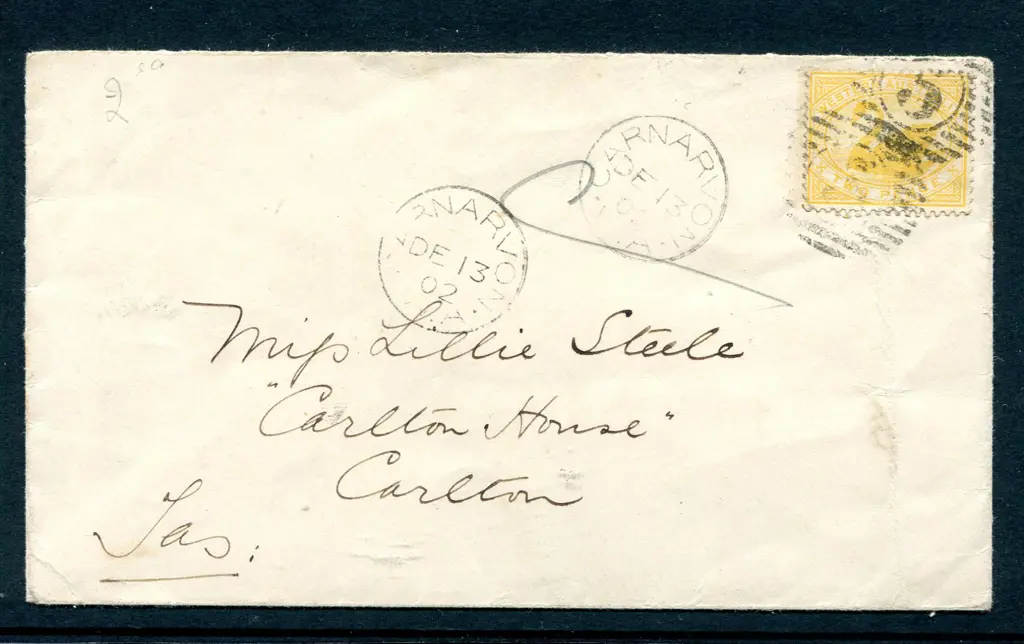 CARNARVON
DE 13
CARNARVON. W.A
DE 13
02
5
Miss Lillie Steele
"Carlton House"
Carlton
Tas.